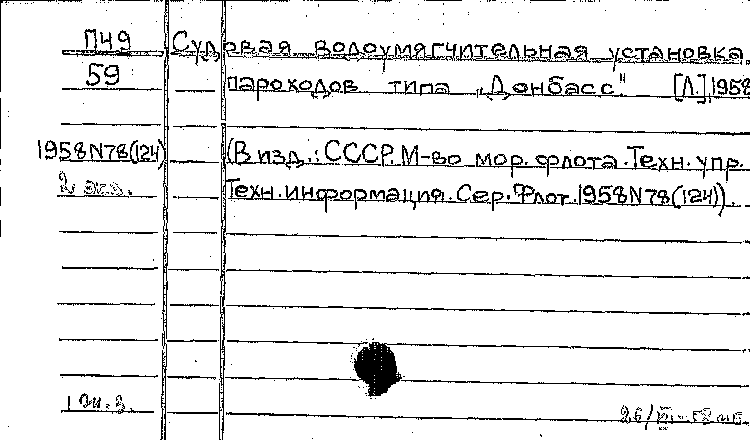 П49 Судовая водоумягчительная установка
59 пароходов типа „Донбасс" [Л.], 1958
1958 N78(124) (В изд.: СССР. М-во мор. флота. Техн. упр.
2 экз. Техн. информация. Сер. Флот. 1958 N78(124)).
1 эк. з.